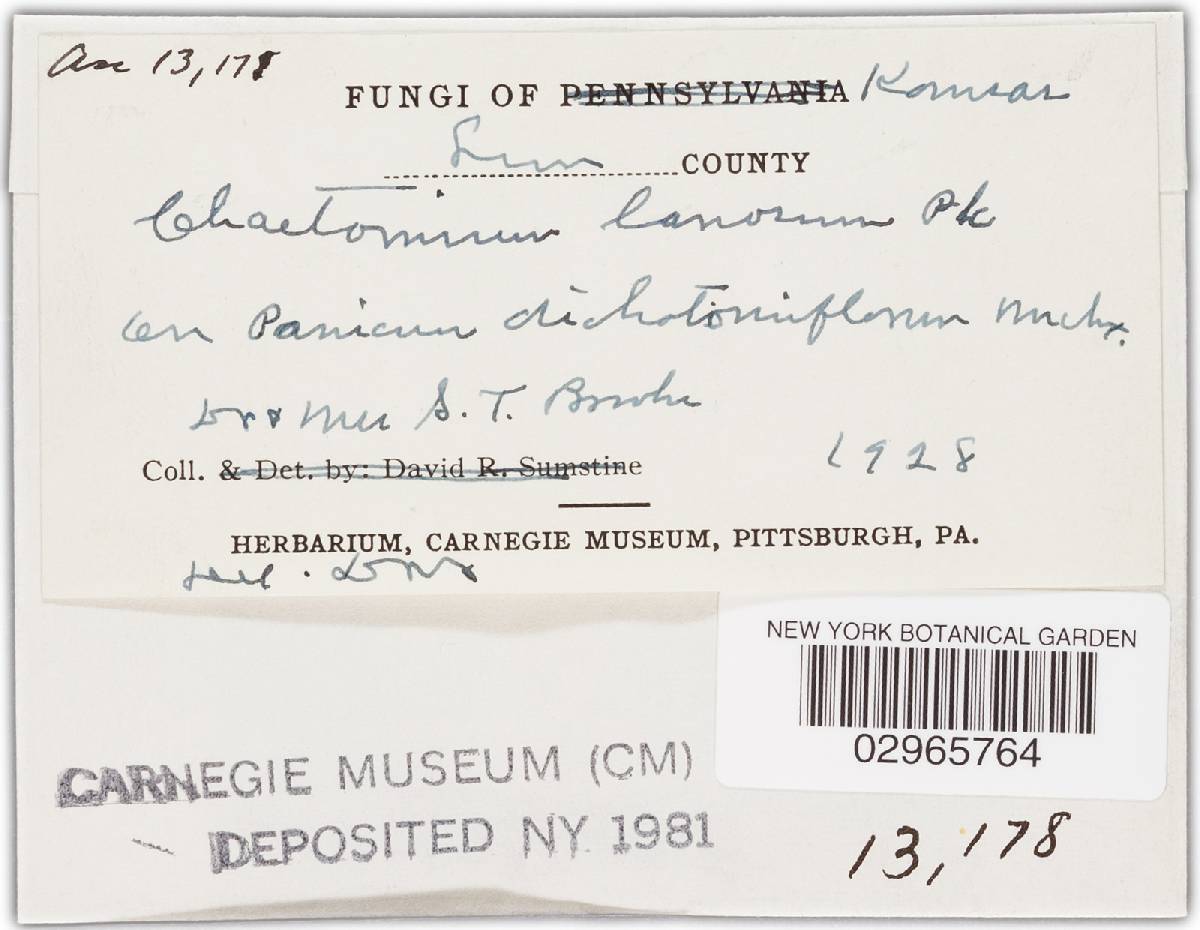 Acc 13,178
FUNGI OF PENNSYLVANIA Kansas
Linn COUNTY
Chaetomium lanosum Pk
on Panicum dichotomiflorum Michx.
Dr & Mrs S. T.
Coll. & Det. by: David R. Sumstine
1928
HERBARIUM, CARNEGIE MUSEUM, PITTSBURGH, PA.
NEW YORK BOTANICAL GARDEN
02965764
CARNEGIE MUSEUM (CM)
DEPOSITED NY 1981
13,178